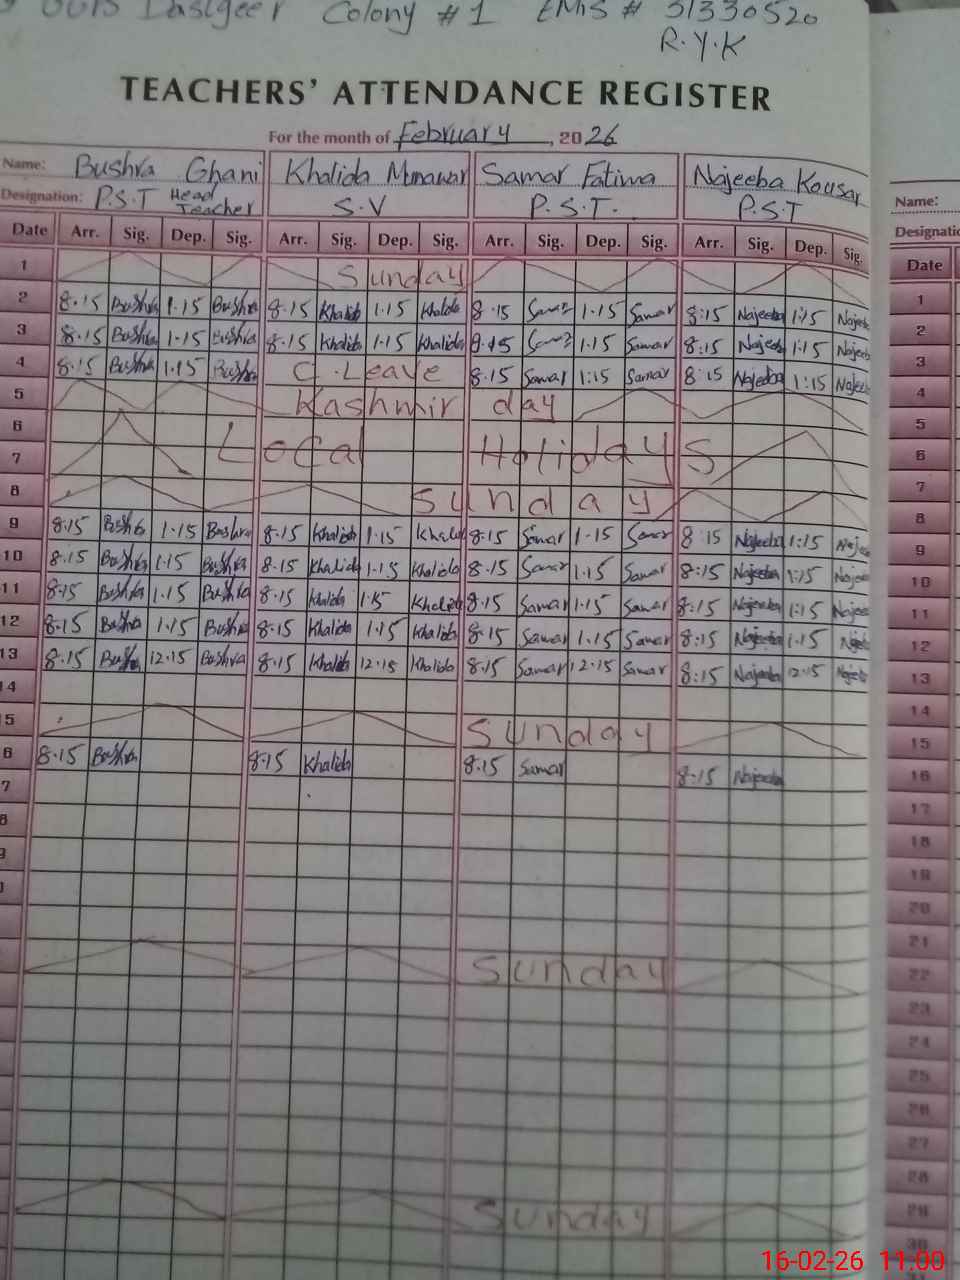 Dastgeer Colony #1 EMIS # 31330520
R.Y.K
TEACHERS' ATTENDANCE REGISTER
For the month of February, 2026
Name: Bushra Ghani Khalida Munawar Samar Fatima Najeeba Kousar Name:
Designation: P.S.T Head Teacher S.V P.S.T. P.S.T
Date Arr. Sig. Dep. Sig. Arr. Sig. Dep. Sig. Arr. Sig. Dep. Sig. Arr. Sig. Dep. Sig. Date
1 Sunday 1
2 8.15 Bushra 1.15 Bushra 8.15 Khalida 1.15 Khalida 8.15 Samar 1.15 Samar 8:15 Najeeba 1:15 Najeeb 2
3 8.15 Bushra 1.15 Bushra 8.15 Khalida 1.15 Khalida 8.15 Samar 1.15 Samar 8:15 Najeeb 1:15 Najeeb 3
4 8.15 Bushra 1.15 Bushra C.Leave 8.15 Samar 1:15 Samar 8:15 Najeeba 1:15 Najee 4
5 Kashmir day 5
6 Local Holidays 6
7 7
8 Sunday 8
9 8.15 Bushra 1.15 Bushra 8.15 Khalida 1.15 Khalid 8.15 Samar 1.15 Samar 8:15 Najeeba 1:15 Najee 9
10 8.15 Bushra 1.15 Bushra 8.15 Khalida 1.15 Khalida 8.15 Samar 1.15 Samar 8:15 Najeeba 1:15 Najee 10
11 8.15 Bushra 1.15 Bushra 8.15 Khalida 1.15 Khalida 8.15 Samar 1.15 Samar 8:15 Najeeba 1:15 Najee 11
12 8.15 Bushra 1.15 Bushra 8.15 Khalida 1.15 Khalida 8.15 Samar 1.15 Samar 8:15 Najeeba 1.15 Najeeb 12
13 8.15 Bushra 12.15 Bushra 8.15 Khalida 12.15 Khalida 8.15 Samar 12.15 Samar 8:15 Najeeba 12.15 Najeeb 13
14 14
5 Sunday 15
6 8.15 Bushra 8.15 Khalida 8.15 Samar 8:15 Najeeba 16
7 17
8 18
19
20
21
Sunday 22
23
24
25
26
27
28
Sunday 29
30
16-02-26 11:00